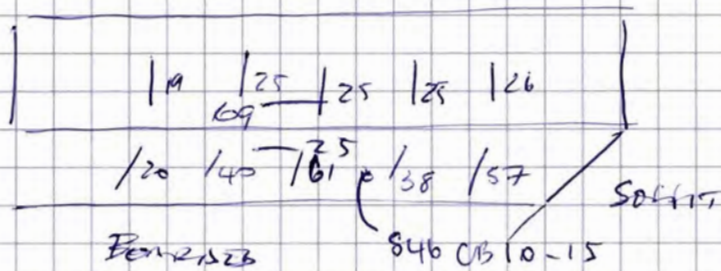 /19 /25 /25 /25 /26
69
25
/20 /40 /61 /38 /57
846 CB 10-15